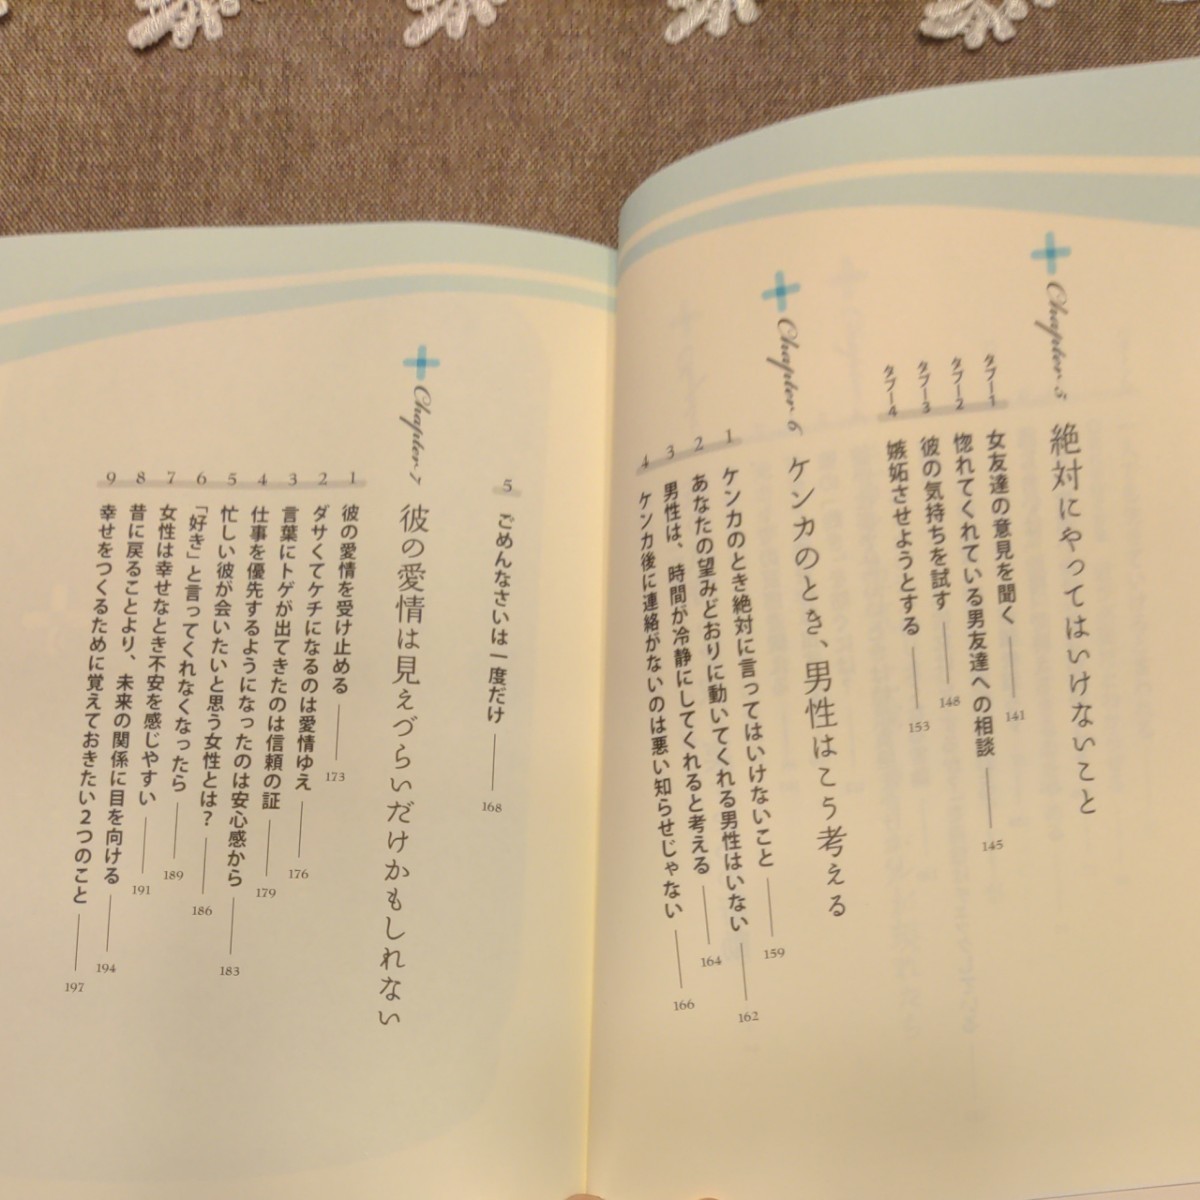 Chapter 5 絶対にやってはいけないこと
タブー1 女友達の意見を聞く 141
タブー2 惚れてくれている男友達への相談 145
タブー3 彼の気持ちを試す 148
タブー4 嫉妬させようとする 153
Chapter 6 ケンカのとき、男性はこう考える
1 ケンカのとき絶対に言ってはいけないこと 159
2 あなたの望みどおりに動いてくれる男性はいない 162
3 男性は、時間が冷静にしてくれると考える 164
4 ケンカ後に連絡がないのは悪い知らせじゃない 166
5 ごめんなさいは一度だけ 168
Chapter 7 彼の愛情は見えづらいだけかもしれない
1 彼の愛情を受け止める 173
2 ダサくてケチになるのは愛情ゆえ 176
3 言葉にトゲが出てきたのは信頼の証 179
4 仕事を優先するようになったのは安心感から 183
5 忙しい彼が会いたいと思う女性とは？ 186
6 「好き」と言ってくれなくなったら 189
7 女性は幸せなとき不安を感じやすい 191
8 昔に戻ることより、未来の関係に目を向ける 194
9 幸せをつくるために覚えておきたい2つのこと 197